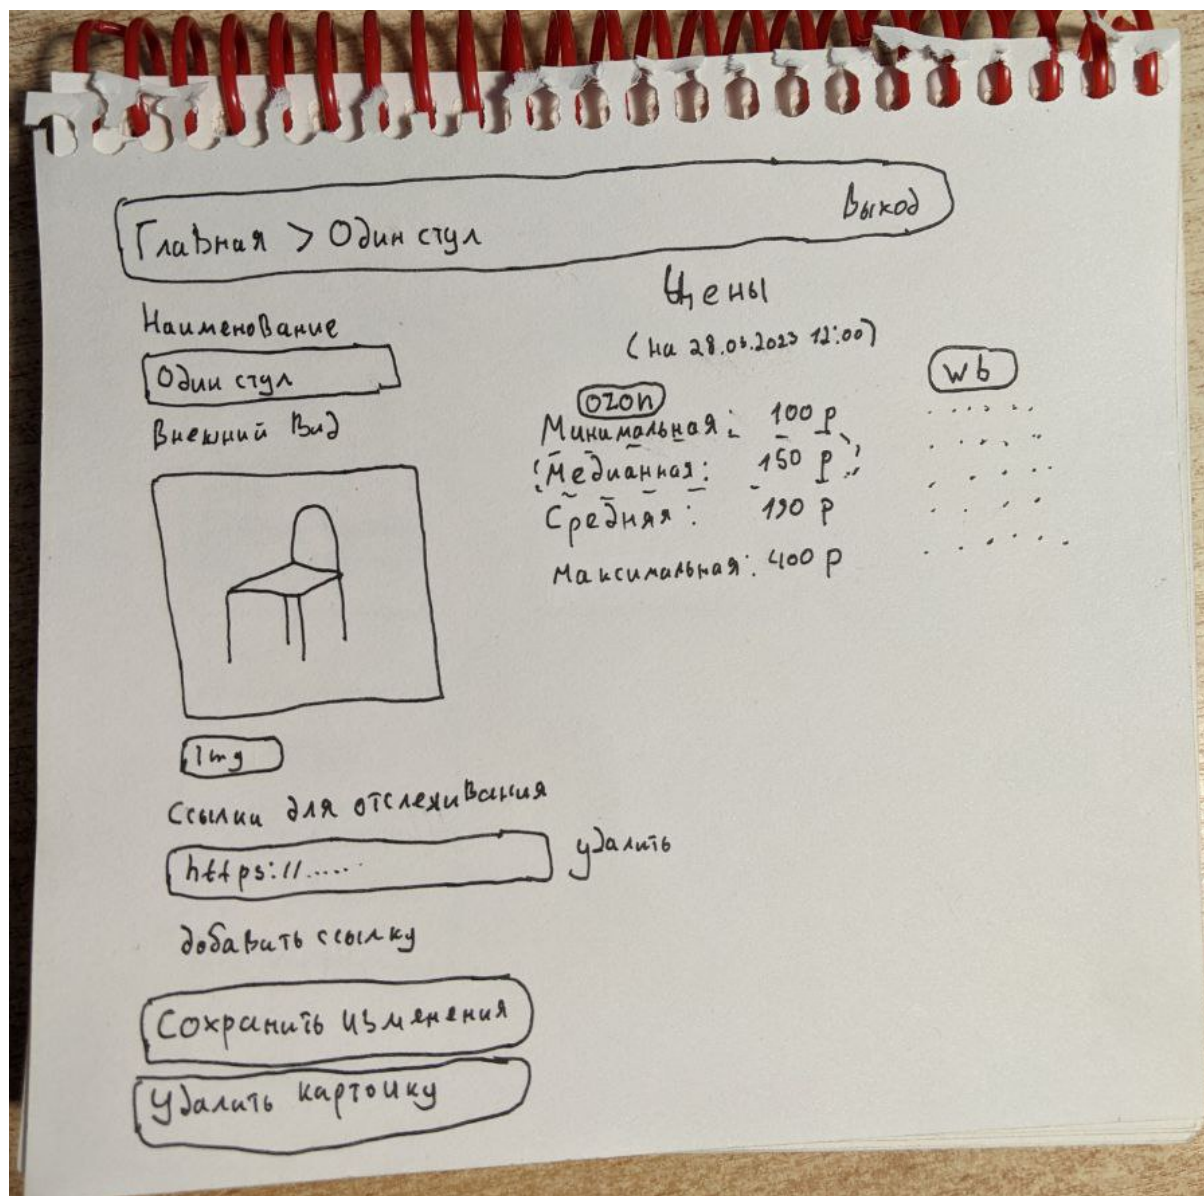 Главная > Один стул
Выход
Наименование
Один стул
Внешний вид
Img
Ссылки для отслеживания
https://.....
удалить
добавить ссылку
Сохранить изменения
Удалить карточку
Цены
(на 28.03.2023 12:00)
ozon
Минимальная: 100 р
Медианная: 150 р
Средняя: 190 р
Максимальная: 400 р
wb